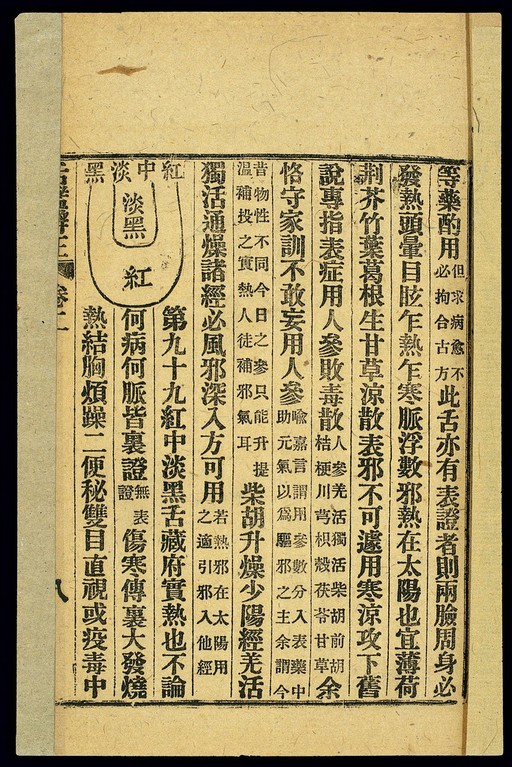 等藥酌用但求病愈不必拘合古方此舌亦有表證者則兩臉周身必
發熱頭暈目眩乍熱乍寒脈浮數邪熱在太陽也宜薄荷
荆芥竹葉葛根生甘草涼散表邪不可遽用寒涼攻下舊
說專指表症用人參敗毒散人參羌活獨活柴胡前胡桔梗川芎枳殼茯苓甘草余
恪守家訓不敢妄用人參喻嘉言謂用參數分入表藥中助元氣以爲驅邪之主余謂今
昔物性不同今日之參只能升提溫補投之實熱人徒補邪氣耳柴胡升燥少陽經羌活
獨活通燥諸經必風邪深入方可用若熱邪在太陽用之適引邪入他經
紅中淡黑
淡黑
紅
第九十九紅中淡黑舌藏府實熱也不論
何病何脈皆裏證無表證傷寒傳裏大發燒
熱結胸煩躁二便秘雙目直視或疫毒中
八